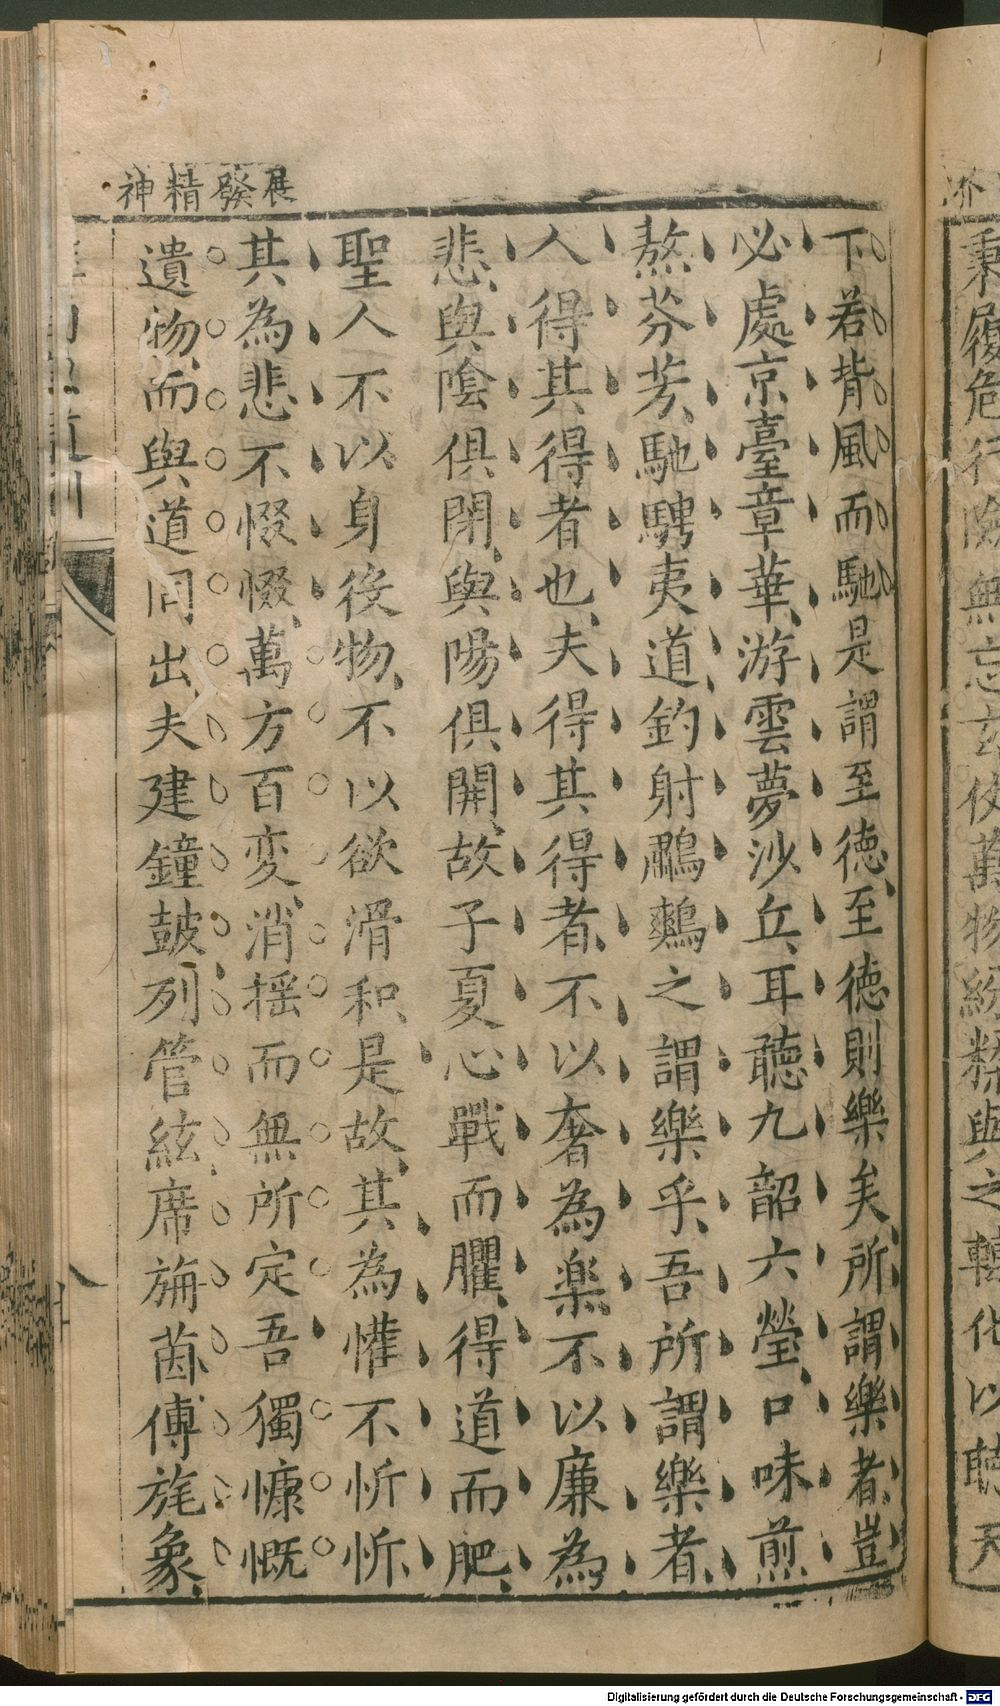 展發精神
下若背風而馳是謂至德至德則樂矣所謂樂者豈
必處京臺章華游雲夢沙丘耳聽九韶六瑩口味煎
熬芬芳馳騁夷道釣射鷫鷞之謂樂乎吾所謂樂者
人得其得者也夫得其得者不以奢為樂不以廉為
悲與陰俱閉與陽俱開故子夏心戰而臞得道而肥
聖人不以身役物不以欲滑和是故其為懽不忻忻
其為悲不惙惙萬方百変消搖而無所定吾獨慷慨
遺物而與道同出夫建鐘鼓列管絃席旃茵傅旄象
秉履危行險無忘玄仗萬物紛糅與之轉化以聽天
Digitalisierung gefördert durch die Deutsche Forschungsgemeinschaft - DFG